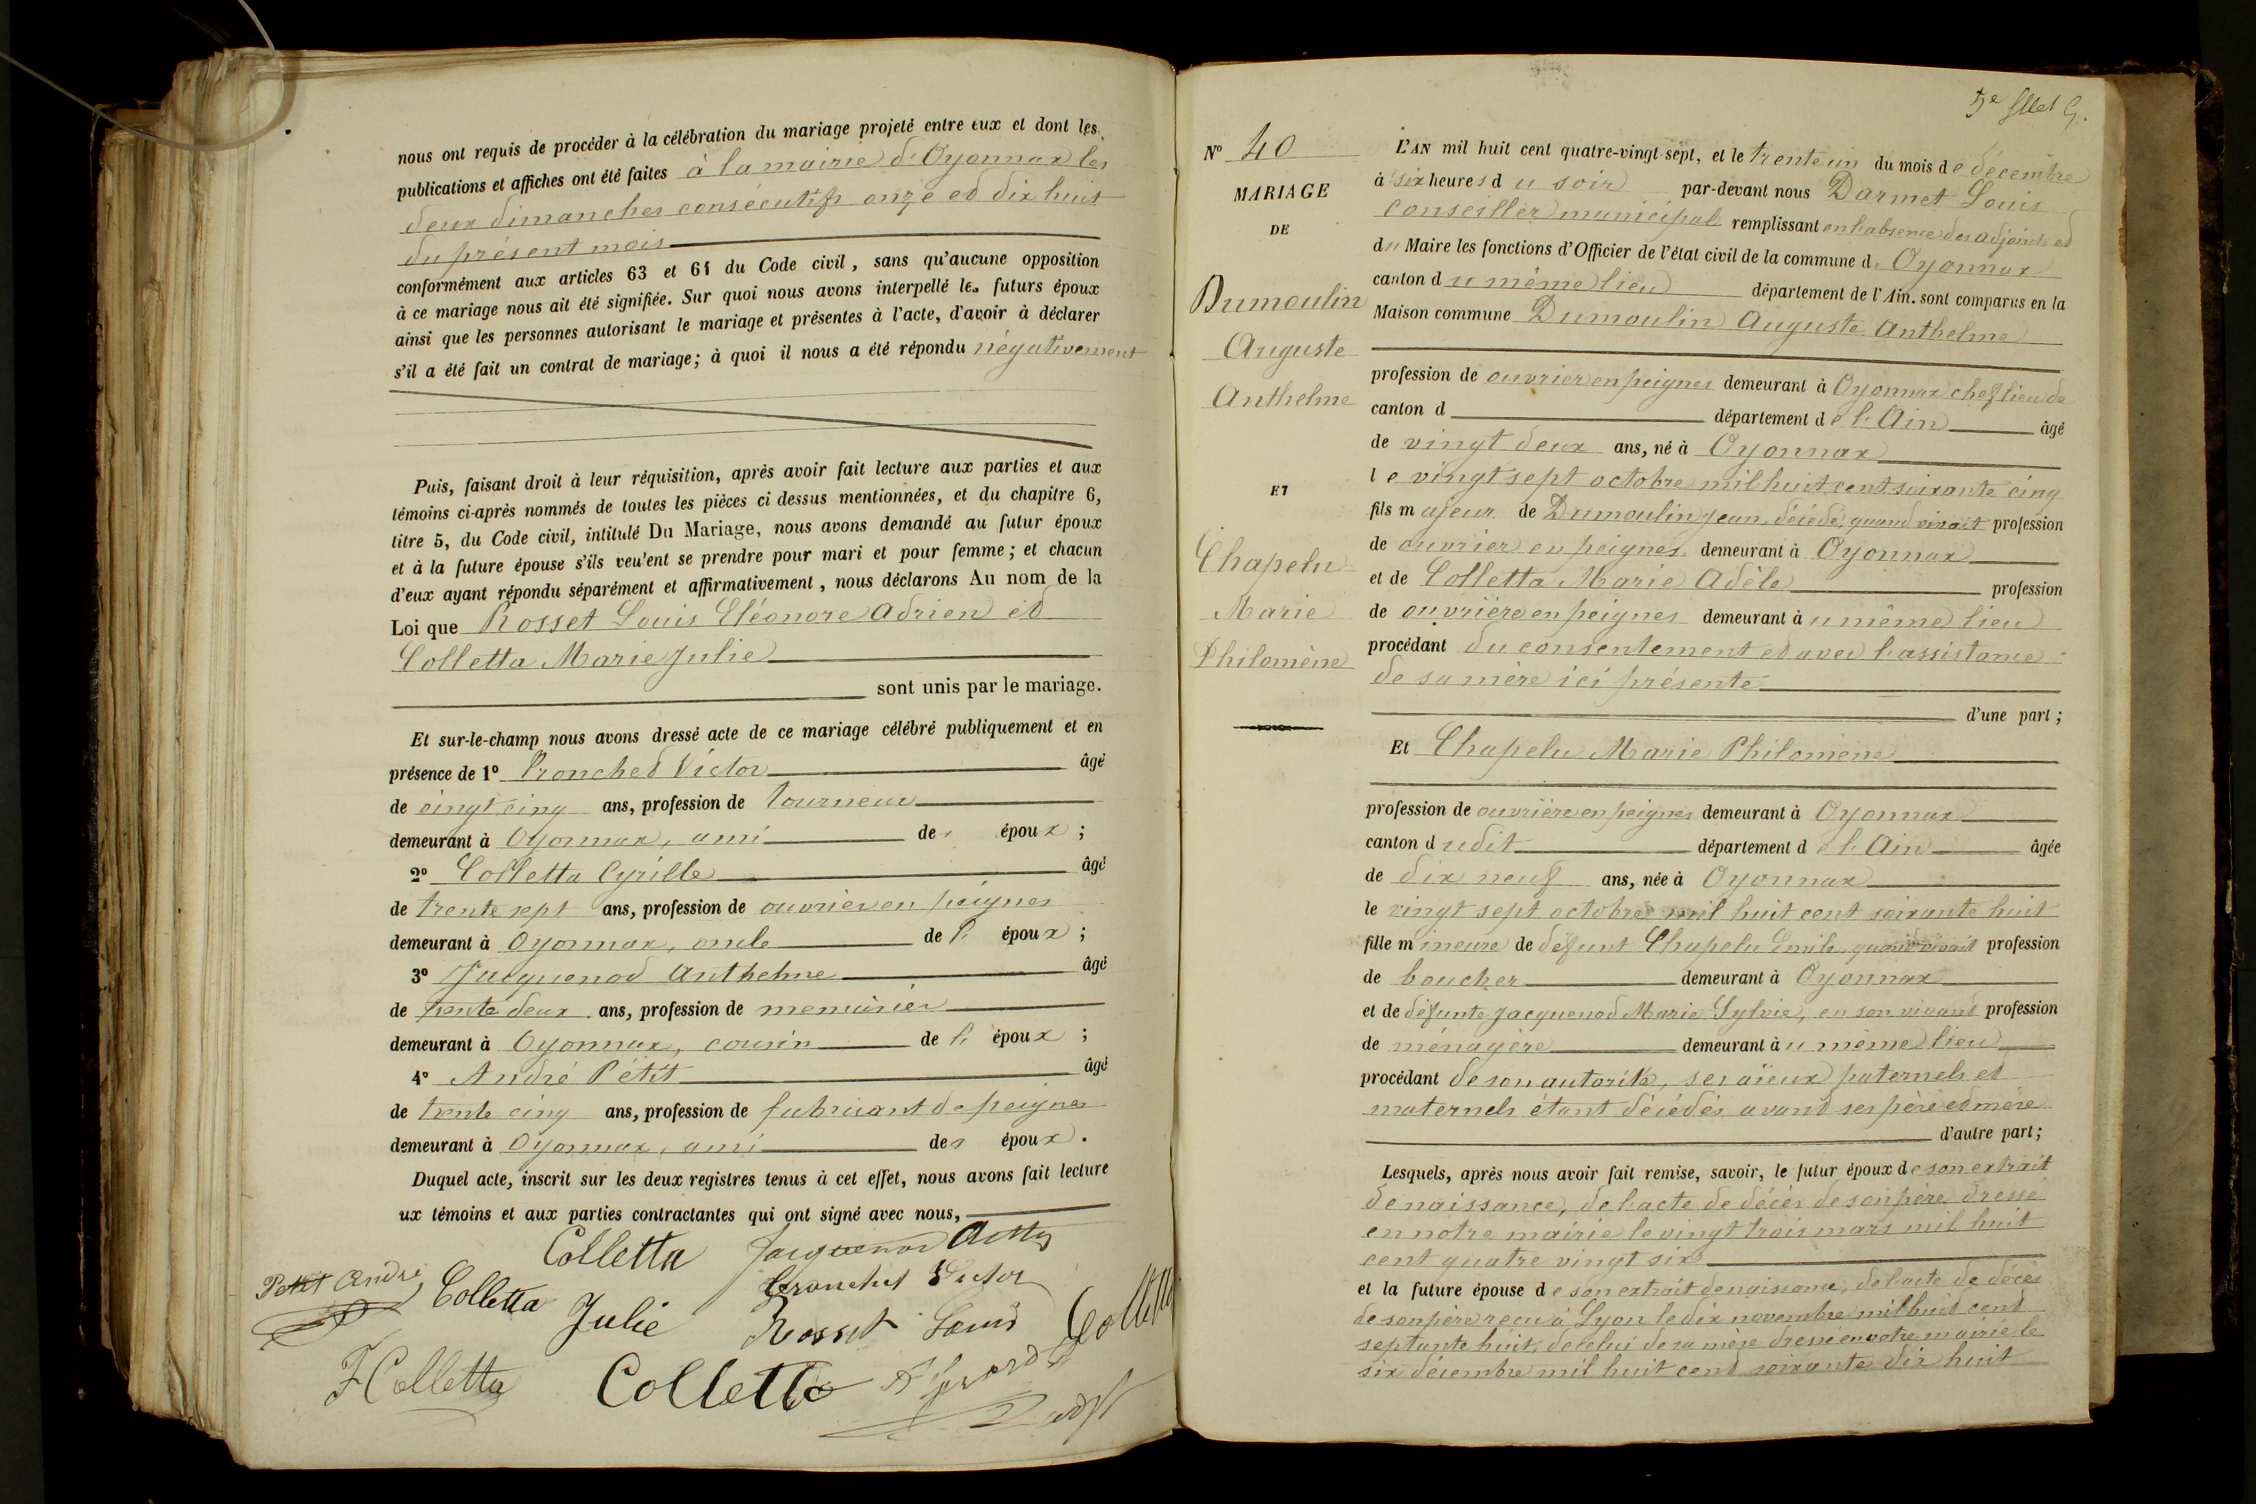 nous ont requis de procéder à la célébration du mariage projeté entre eux et dont les
publications et affiches ont été faites à la mairie d'Oyonnax les
deux dimanches consécutifs onze et dix huit
du présent mois
conformément aux articles 63 et 64 du Code civil, sans qu'aucune opposition
à ce mariage nous ait été signifiée. Sur quoi nous avons interpellé les futurs époux
ainsi que les personnes autorisant le mariage et présentes à l'acte, d'avoir à déclarer
s'il a été fait un contrat de mariage; à quoi il nous a été répondu négativement
Puis, faisant droit à leur réquisition, après avoir fait lecture aux parties et aux
témoins ci-après nommés de toutes les pièces ci dessus mentionnées, et du chapitre 6,
titre 5, du Code civil, intitulé Du Mariage, nous avons demandé au futur époux
et à la future épouse s'ils veu'ent se prendre pour mari et pour femme; et chacun
d'eux ayant répondu séparément et affirmativement, nous déclarons Au nom de la
Loi que Rosset Louis Eléonore Adrien et
Colletta Marie Julie
sont unis par le mariage.
Et sur-le-champ nous avons dressé acte de ce mariage célébré publiquement et en
présence de 1° Cronchet Victor âgé
de vingt cinq ans, profession de tourneur
demeurant à Oyonnax, ami des époux;
2° Colletta Cyrille âgé
de trente sept ans, profession de ouvrier en peignes
demeurant à Oyonnax, oncle de l' époux;
3° Jacquenod Anthelme âgé
de trente deux ans, profession de menuisier
demeurant à Oyonnax, cousin de l' époux;
4° André Pétit âgé
de trente cinq ans, profession de fabricant de peignes
demeurant à Oyonnax, ami des époux.
Duquel acte, inscrit sur les deux registres tenus à cet effet, nous avons fait lecture
ux témoins et aux parties contractantes qui ont signé avec nous,
Colletta Jacquenod
Petit André Colletta Julie Cronchet Victor
Rosset Louis Colletta
F Colletta Colletta
5e
N° 40
MARIAGE
DE
Dumoulin
Auguste
Anthelme
ET
Chapelu
Marie
Philomène
L'AN mil huit cent quatre-vingt sept, et le trente un du mois de décembre
à six heures du soir par-devant nous Darmet Louis
conseiller municipal remplissant en l'absence des adjoints et
du Maire les fonctions d'Officier de l'état civil de la commune d' Oyonnax
canton du même lieu département de l'Ain. sont comparus en la
Maison commune Dumoulin Auguste Anthelme
profession de ouvrier en peignes demeurant à Oyonnax chef lieu de
canton d département de l'Ain âgé
de vingt deux ans, né à Oyonnax
le vingt sept octobre mil huit cent soixante cinq
fils majeur de Dumoulin Jean, décédé, quand vivait profession
de ouvrier en peignes demeurant à Oyonnax
et de Colletta Marie Adèle profession
de ouvrière en peignes demeurant au même lieu
procédant du consentement et avec l'assistance
de sa mère ici présente
d'une part;
Et Chapelu Marie Philomène
profession de ouvrière en peignes demeurant à Oyonnax
canton dudit département de l'Ain âgée
de dix neuf ans, née à Oyonnax
le vingt sept octobre mil huit cent soixante huit
fille mineure de défunt Chapelu Emile, quand vivait profession
de boucher demeurant à Oyonnax
et de défunte Jacquenod Marie Sylvie, en son vivant profession
de ménagère demeurant au même lieu
procédant de son autorité, ses aïeux paternels et
maternels étant décédés avant ses père et mère
d'autre part;
Lesquels, après nous avoir fait remise, savoir, le futur époux de son extrait
de naissance, de l'acte de décès de son père dressé
en notre mairie le vingt trois mars mil huit
cent quatre vingt six
et la future épouse de son extrait de naissance, de l'acte de décès
de son père reçu à Lyon le dix novembre mil huit cent
septante huit, de celui de sa mère dressé en notre mairie le
six décembre mil huit cent soixante dix huit